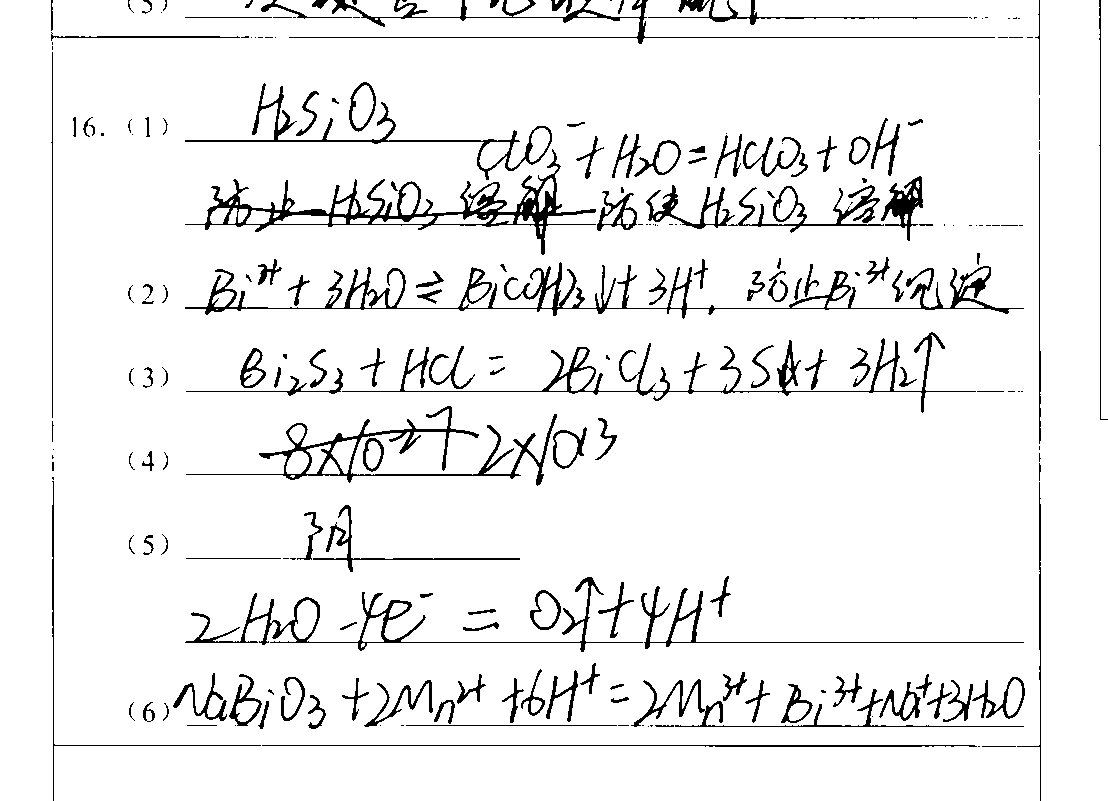 (5)
16.(1) H₂SiO₃
ClO₃⁻+H₂O=HClO₃+OH⁻
防止H₂SiO₃溶解 防使H₂SiO₃溶解
(2) Bi³⁺+3H₂O⇌Bi(OH)₃↓+3H⁺, 防止Bi³⁺沉淀
(3) Bi₂S₃+HCl=2BiCl₃+3S↓+3H₂↑
(4) 8×10⁻²⁷ 2×10^13
(5) 阴
2H₂O-4e⁻=O₂↑+4H⁺
(6) NaBiO₃+2Mn²⁺+6H⁺=2Mn³⁺+Bi³⁺+Na⁺+3H₂O